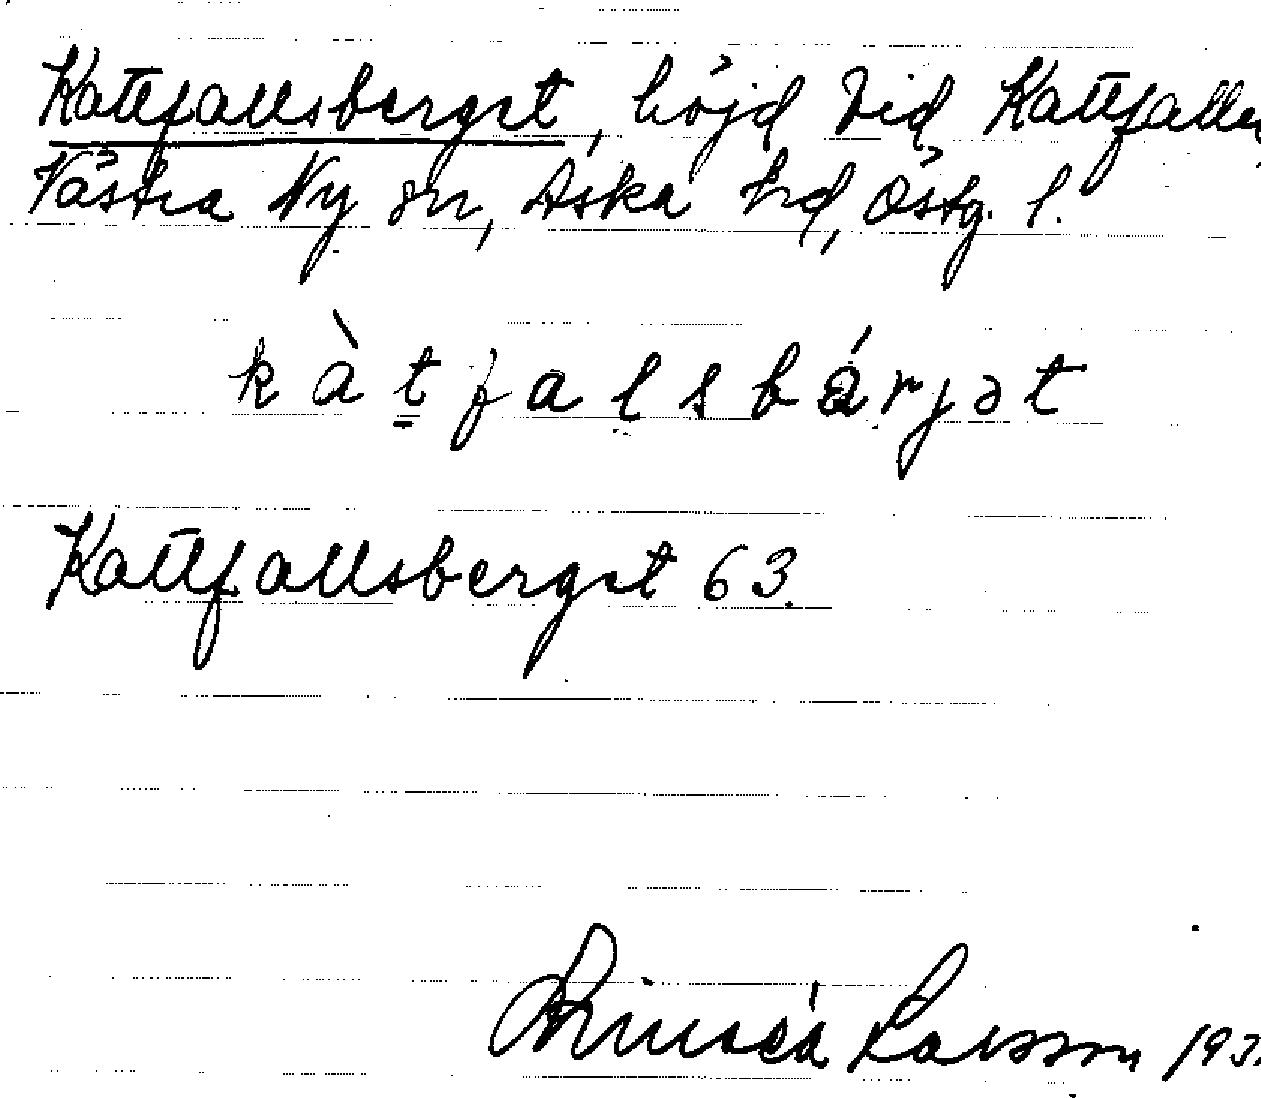 Kattfallsberget, höjd vid Kattfallen
Västra Ny sn, Aska hd, Östg. l.
kàt̳falsbárjət
Kattfallsberget 63.
Larsson 193